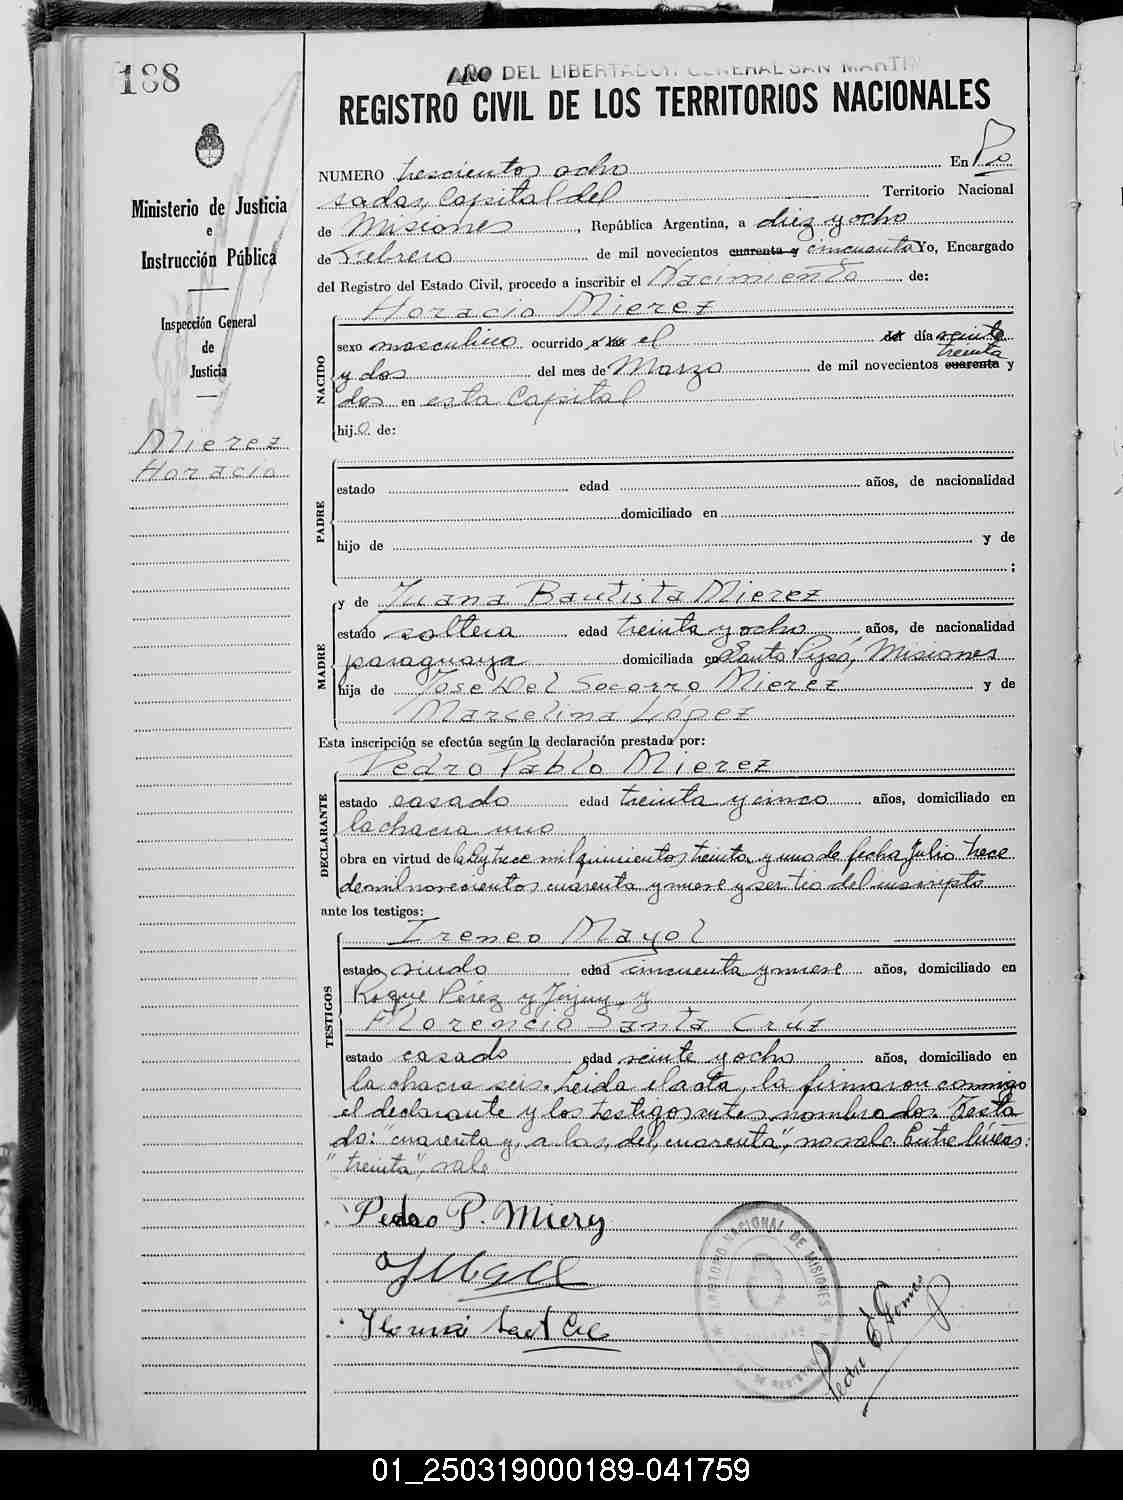 188
AÑO DEL LIBERTADOR GENERAL SAN MARTIN
REGISTRO CIVIL DE LOS TERRITORIOS NACIONALES
Ministerio de Justicia
e
Instrucción Pública
Inspección General
de
Justicia
Mierez
Horacio
NUMERO trescientos ocho En Po
sadas, Capital del Territorio Nacional
de Misiones, República Argentina, a diez y ocho
de Febrero de mil novecientos cuarenta y cincuenta Yo, Encargado
del Registro del Estado Civil, procedo a inscribir el Nacimiento de:
Horacio Mierez
NACIDO
sexo masculino ocurrido a las el del día veinte
treinta
y dos del mes de Marzo de mil novecientos cuarenta y
dos en esta Capital
hij o de:
PADRE
estado edad años, de nacionalidad
domiciliado en
hijo de y de
;
MADRE
y de Juana Bautista Mierez
estado soltera edad treinta y ocho años, de nacionalidad
paraguaya domiciliada en Santo Pipó, Misiones
hija de Jose Del Socorro Mierez y de
Marcelina López
Esta inscripción se efectúa según la declaración prestada por:
DECLARANTE
Pedro Pablo Mierez
estado casado edad treinta y cinco años, domiciliado en
la chacra uno
obra en virtud de la Ley trece mil quinientos treinta y uno de fecha Julio trece
de mil novecientos cuarenta y nueve y ser tio del inscripto
ante los testigos:
TESTIGOS
Ireneo Mayol
estado viudo edad cincuenta y nueve años, domiciliado en
Roque Pérez y Jujuy, y
Florencio Santa Crúz
estado casado edad veinte y ocho años, domiciliado en
la chacra seis. Leida el acta, la firmaron conmigo
el declarante y los testigos antes nombrados. Testa
do: "cuarenta y, a las, del, cuarenta", no vale. Entre líneas:
"treinta", vale
Pedro P. Mierez
Pedro E. Gomes
01_250319000189-041759